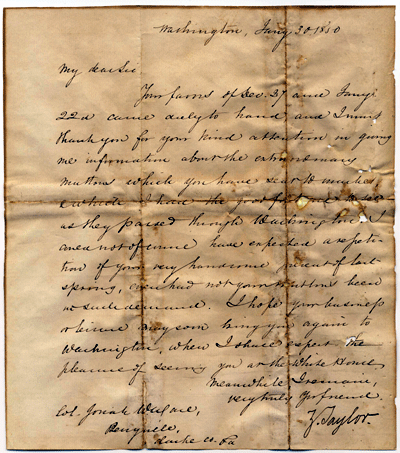 Washington, Jany 30 1850
My dear Sir
Your favors of Dec. 27 and Jany
22d came duly to hand, and I must
thank you for your kind attention in giving
me information about the extraordinary
muttons which you have sent to market
& which I had the good fortune to see
as they passed through Washington. I
could not of course have expected a repeti-
tion of your very handsome present of last
spring, even had not your muttons been
in such demand. I hope your business
or leisure may soon bring you again to
Washington, when I shall expect the
pleasure of seeing you at the White House
Meanwhile I remain,
very truly yr friend
Z. Taylor.
Col. Josiah